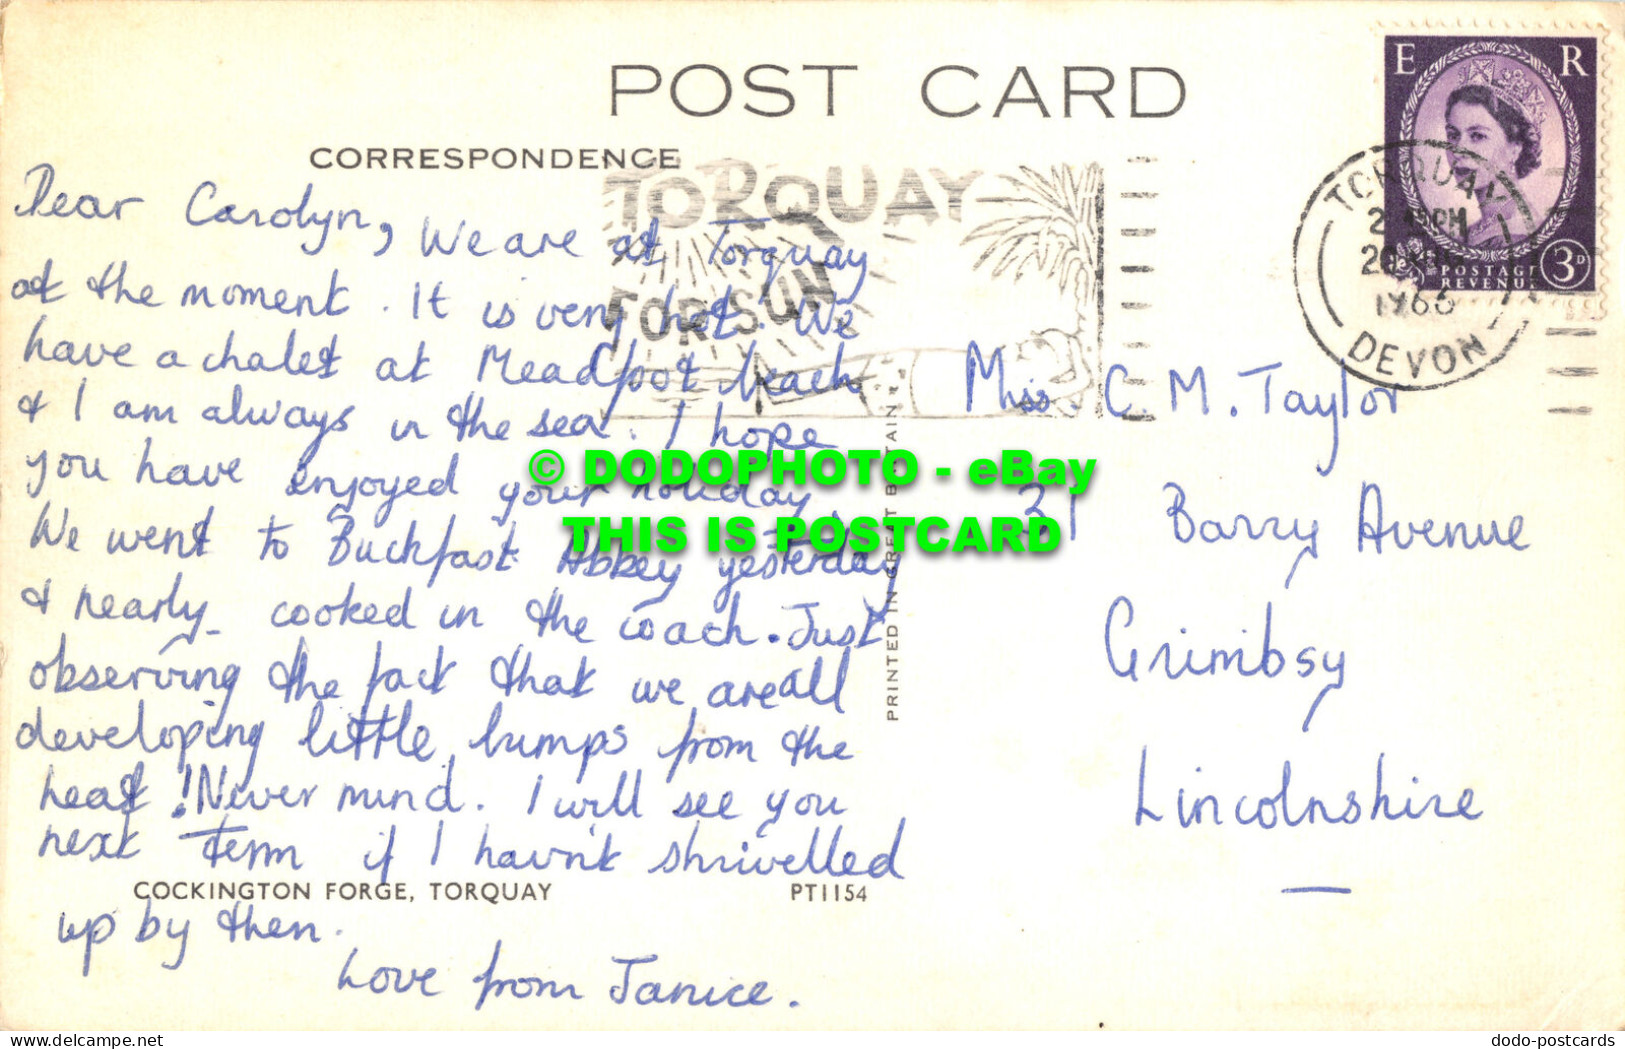 POST CARD
CORRESPONDENCE
TORQUAY
FOR SUN
E R
POSTAGE
REVENUE
3D
TORQUAY
1966
DEVON
Dear Carolyn, We are at Torquay
at the moment. It is very hot. We
have a chalet at Meadfoot beach
& I am always in the sea. I hope
you have enjoyed your holiday.
We went to Buckfast Abbey yesterday
& nearly cooked in the coach. Just
observing the fact that we are all
developing little bumps from the
heat! Never mind. I will see you
next Term if I havn't shrivelled
up by then.
Love from Janice.
Miss. C. M. Taylor
31 Barry Avenue
Grimbsy
Lincolnshire
© DODOPHOTO - eBay
THIS IS POSTCARD
PRINTED IN GREAT BRITAIN
COCKINGTON FORGE, TORQUAY PT1154
the delcampe website
dodo-postcards